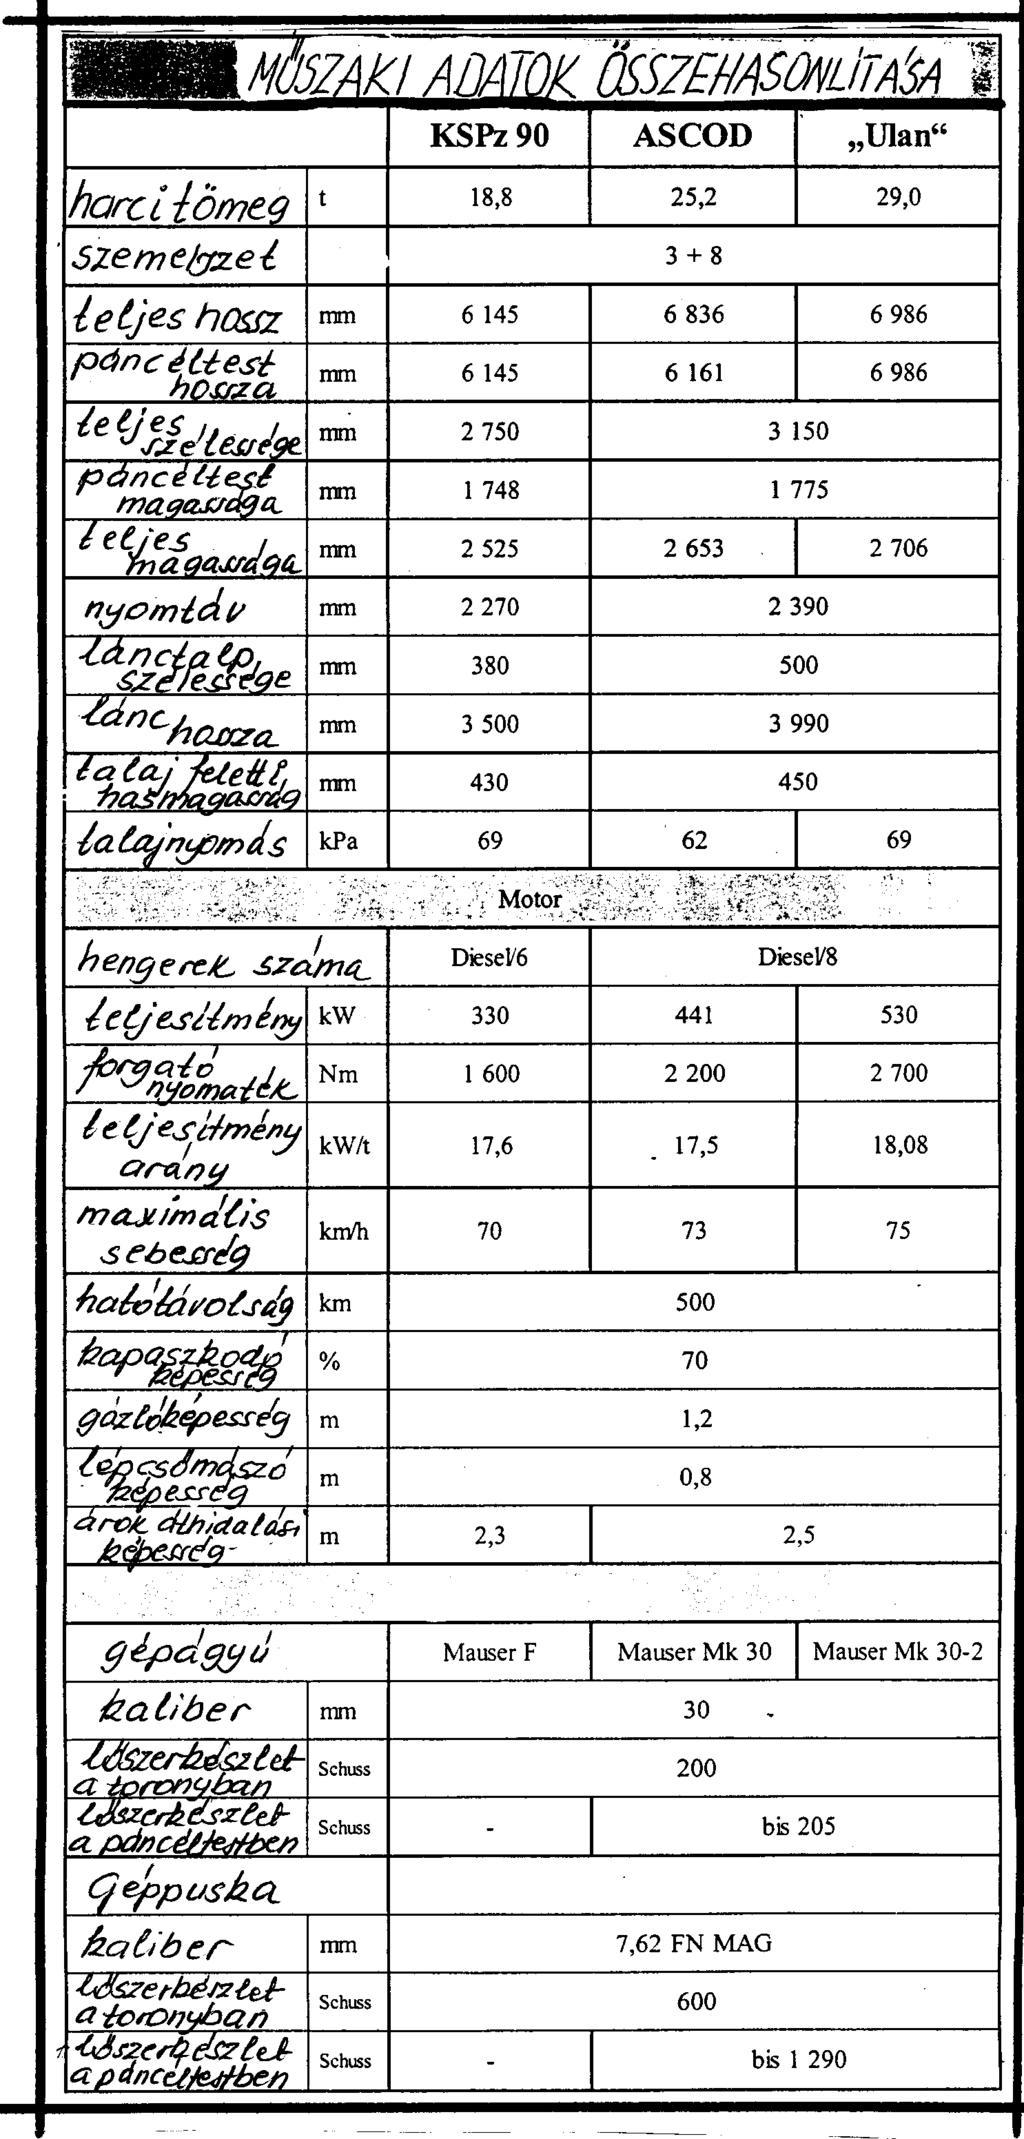 MŰSZAKI ADATOK ÖSSZEHASONLÍTÁSA
KSPz 90 ASCOD „Ulan“
harci tömeg t 18,8 25,2 29,0
személyzet 3 + 8
teljes hossz mm 6 145 6 836 6 986
páncéltest
hossza mm 6 145 6 161 6 986
teljes
szélessége mm 2 750 3 150
páncéltest
magassága mm 1 748 1 775
teljes
magassága mm 2 525 2 653 2 706
nyomtáv mm 2 270 2 390
lánctalp
szélessége mm 380 500
lánc
hossza mm 3 500 3 990
talaj feletti
hasmagasság mm 430 450
talajnyomás kPa 69 62 69
Motor
hengerek száma Diesel/6 Diesel/8
teljesítmény kW 330 441 530
forgató
nyomaték Nm 1 600 2 200 2 700
teljesítmény
arány kW/t 17,6 17,5 18,08
maximális
sebesség km/h 70 73 75
hatótávolság km 500
kapaszkodó
képesség % 70
gázlóképesség m 1,2
lépcsőmászó
képesség m 0,8
árok áthidalási
képesség m 2,3 2,5
gépágyú Mauser F Mauser Mk 30 Mauser Mk 30-2
kaliber mm 30
lőszerkészlet
a toronyban Schuss 200
lőszerkészlet
a páncéltestben Schuss - bis 205
Géppuska
kaliber mm 7,62 FN MAG
lőszerkészlet
a toronyban Schuss 600
lőszerkészlet
a páncéltestben Schuss - bis 1 290